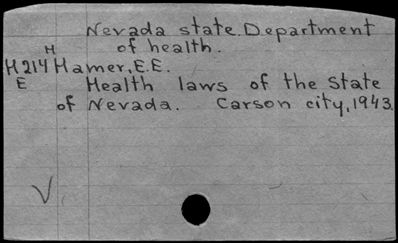 Nevada state. Department
of health.
H
H214 Hamer, E.E.
E Health laws of the State
of Nevada. Carson city, 1943.